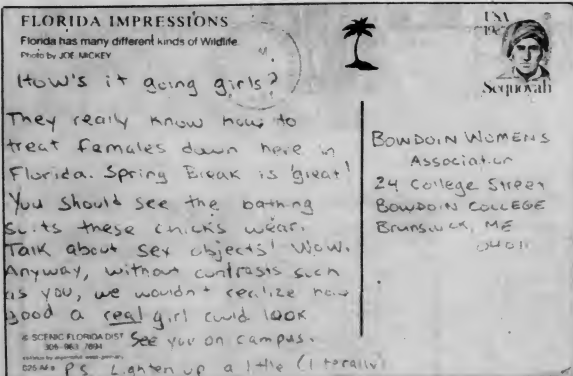 FLORIDA IMPRESSIONS
Florida has many different kinds of Wildlife.
Photo by JOE MICKEY
How's it going girls?
They really know how to
treat females down here in
Florida. Spring Break is great!
You should see the bathing
suits these chicks wear.
Talk about sex objects! Wow.
Anyway, without contrasts such
as you, we wouldn't realize how
good a real girl could look
See you on campus.
© SCENIC FLORIDA DIST
P.S. Lighten up a little (literally)
USA
19c
Sequoyah
BOWDOIN WOMENS
Association
24 College Street
BOWDOIN COLLEGE
Brunswick, ME
04011